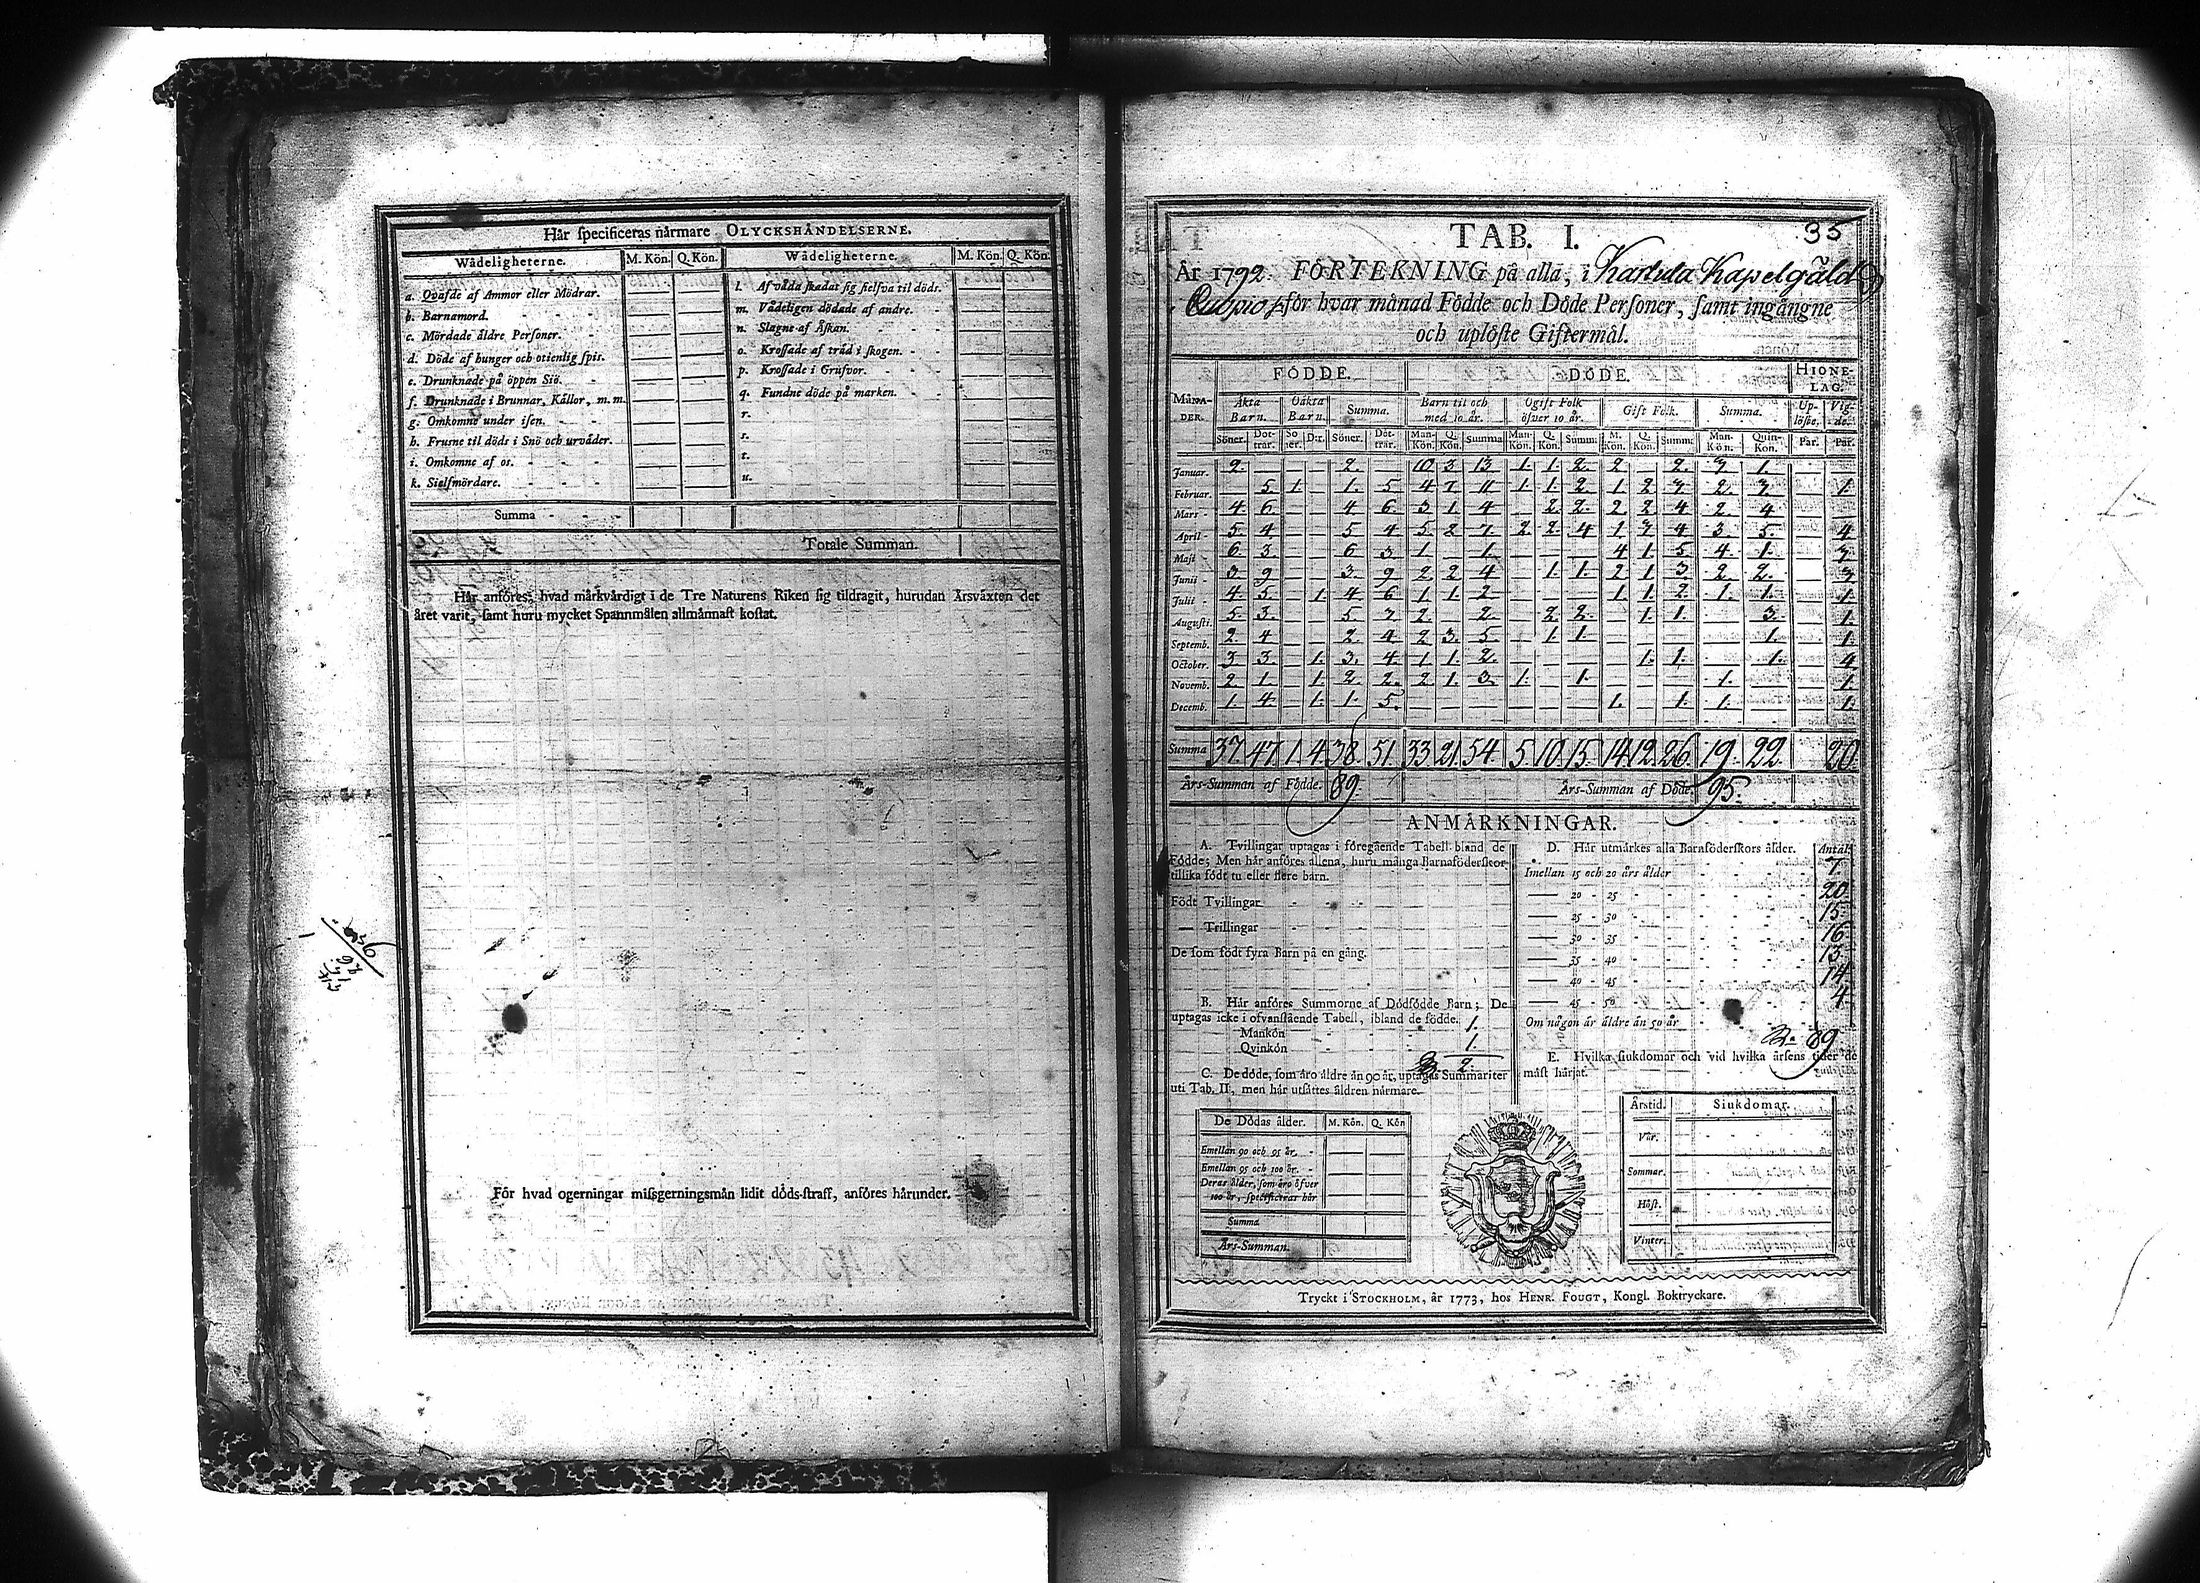 Här specificeras närmare OLYCKSHÄNDELSERNE.
Wådeligheterne. M. Kön. Q. Kön. Wådeligheterne. M. Kön. Q. Kön.
a. Qvafde af Ammor eller Mödrar.
b. Barnamord.
c. Mördade äldre Personer.
d. Döde af hunger och otienlig spis.
e. Drunknade på öppen Siö.
f. Drunknade i Brunnar, Källor, m. m.
g. Omkomne under isen.
h. Frusne til döds i Snö och urväder.
i. Omkomne af os.
k. Sielfmördare.
l. Af våda skadat sig sielfva til döds.
m. Vådeligen dödade af andre.
n. Slagne af Åskan.
o. Krossade af träd i skogen.
p. Krossade i Grufvor.
q. Fundne döde på marken.
r.
s.
t.
u.
Summa
Totale Summan.
Här anföres, hvad märkvärdigt i de Tre Naturens Riken sig tildragit, hurudan Årsväxten det
året varit, samt huru mycket Spannmålen allmännast kostat.
För hvad ogerningar missgerningsmän lidit döds-straff, anföres härunder.
35
TAB. I.
År 1792. FÖRTEKNING på alla, i Kapelgäld
för hvar månad Födde och Döde Personer, samt ingångne
och uplöste Giftermål.
MÅNADER. FÖDDE. DÖDE. HIONELAG.
Äkta Barn. Oäkta Barn. Summa. Barn til och med 10 år. Ogift Folk öfver 10 år. Gift Folk. Summa. Uplöste. Vigde.
Söner. Dottrar. Söner. D:r. Söner. Dottrar. Man-Kön. Q. Kön. Summa Man-Kön. Q. Kön. Summ: M. Kön. Q. Kön. Summ: Man-Kön. Quin-Kön. Par. Par.
Januar. 2. — — — 2. — 10 3 13 1. 1. 2. 2 — 2. 3 1.
Februar. — 5. 1. — 1. 5 4 7. 11 1. 1. 2 1. 2 3 2. 3. — 1.
Mars 4 6 — — 4 6 3 1 4 — 2 2. 2 2 4 2 4
April 5. 4 — — 5 4 5. 2 7. 2 2. 4 1 3 4 3. 5. — 4
Maji 6 3. — — 6 3 1 — 1. — — — 4 1. 5 4. 1. — 3.
Junii 3 9 — — 3. 9 2 2 4 — 1. 1. 2 1. 3 2. 2. — 3
Julii 4 5. — 1. 4 6 1 1. 2 — — — 1. 1. 2 1. 1. — 1.
Augusti. 5. 3. — — 5 3 2. — 2. — 2 2. — 1. 1. — 3. — 1.
Septemb. 2. 4 — — 2. 4 2 3. 5 — 1. 1. — — — — 1. — 1.
October. 3 3. — 1. 3. 4 1 1. 2. — — — — 1. 1. — 1. — 4
Novemb. 2. 1. — 1. 2 2. 2 1. 3 1. — 1. — — — 1. — — 1.
Decemb. 1. 4. — 1. 1. 5. — — — — — — 1. — 1. 1. — — 1.
Summa 37. 47. 1. 4. 38. 51. 33. 21. 54. 5. 10. 15. 14. 12. 26. 19. 22. 20.
Års-Summan af Födde. 89. Års-Summan af Döde. 95.
ANMÄRKNINGAR.
A. Tvillingar uptagas i föregående Tabell bland de
Födde; Men här anföres allena, huru många Barnaföderskor
tillika födt tu eller flere barn.
Födt Tvillingar
— Trillingar
De som födt fyra Barn på en gång.
B. Här anföres Summorne af Dödfödde Barn; De
uptagas icke i ofvanstående Tabell, ibland de födde.
Mankön 1.
Qvinkön 1.
2.
C. De döde, som äro äldre än 90 år, uptagas Summariter
uti Tab. II, men här utsättes åldren närmare.
De Dödas ålder. M. Kön. Q. Kön
Emellan 90 och 95 år.
Emellan 95 och 100 år.
Deras ålder, som äro öfver
100 år, specificeras här
Summa
Års-Summan.
D. Här utmärkes alla Barnföderskors ålder. Antal
Imellan 15 och 20 års ålder 7.
— 20 - 25 20.
— 25 - 30 15.
— 30 - 35 16.
— 35 - 40 13.
— 40 - 45 14.
— 45 - 50 4.
Om någon är äldre än 50 år
89
E. Hvilka siukdomar och vid hvilka årsens tider de
mäst härjat.
Årstid. Siukdomar.
Vår.
Sommar.
Höst.
Vinter.
Tryckt i STOCKHOLM, år 1773, hos HENR. FOUGT, Kongl. Boktryckare.